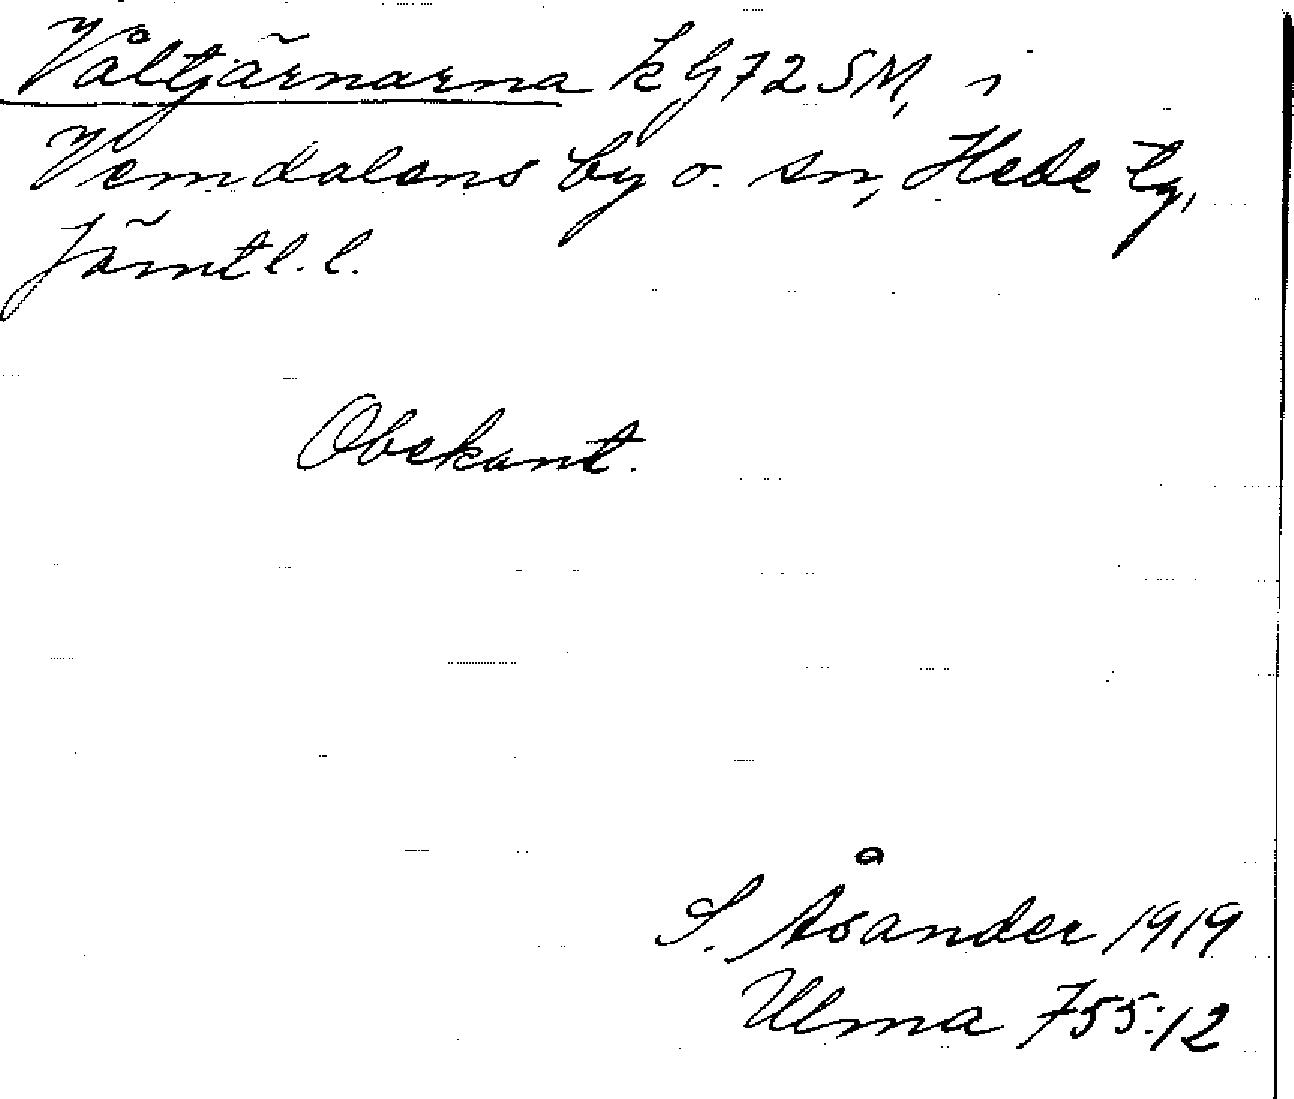 Våltjärnarna k G72SM, i
Vemdalens by o. sn, Hede tg,
Jämtl. l.
Obekant.
S. Åsander 1919
Ulma 755:12